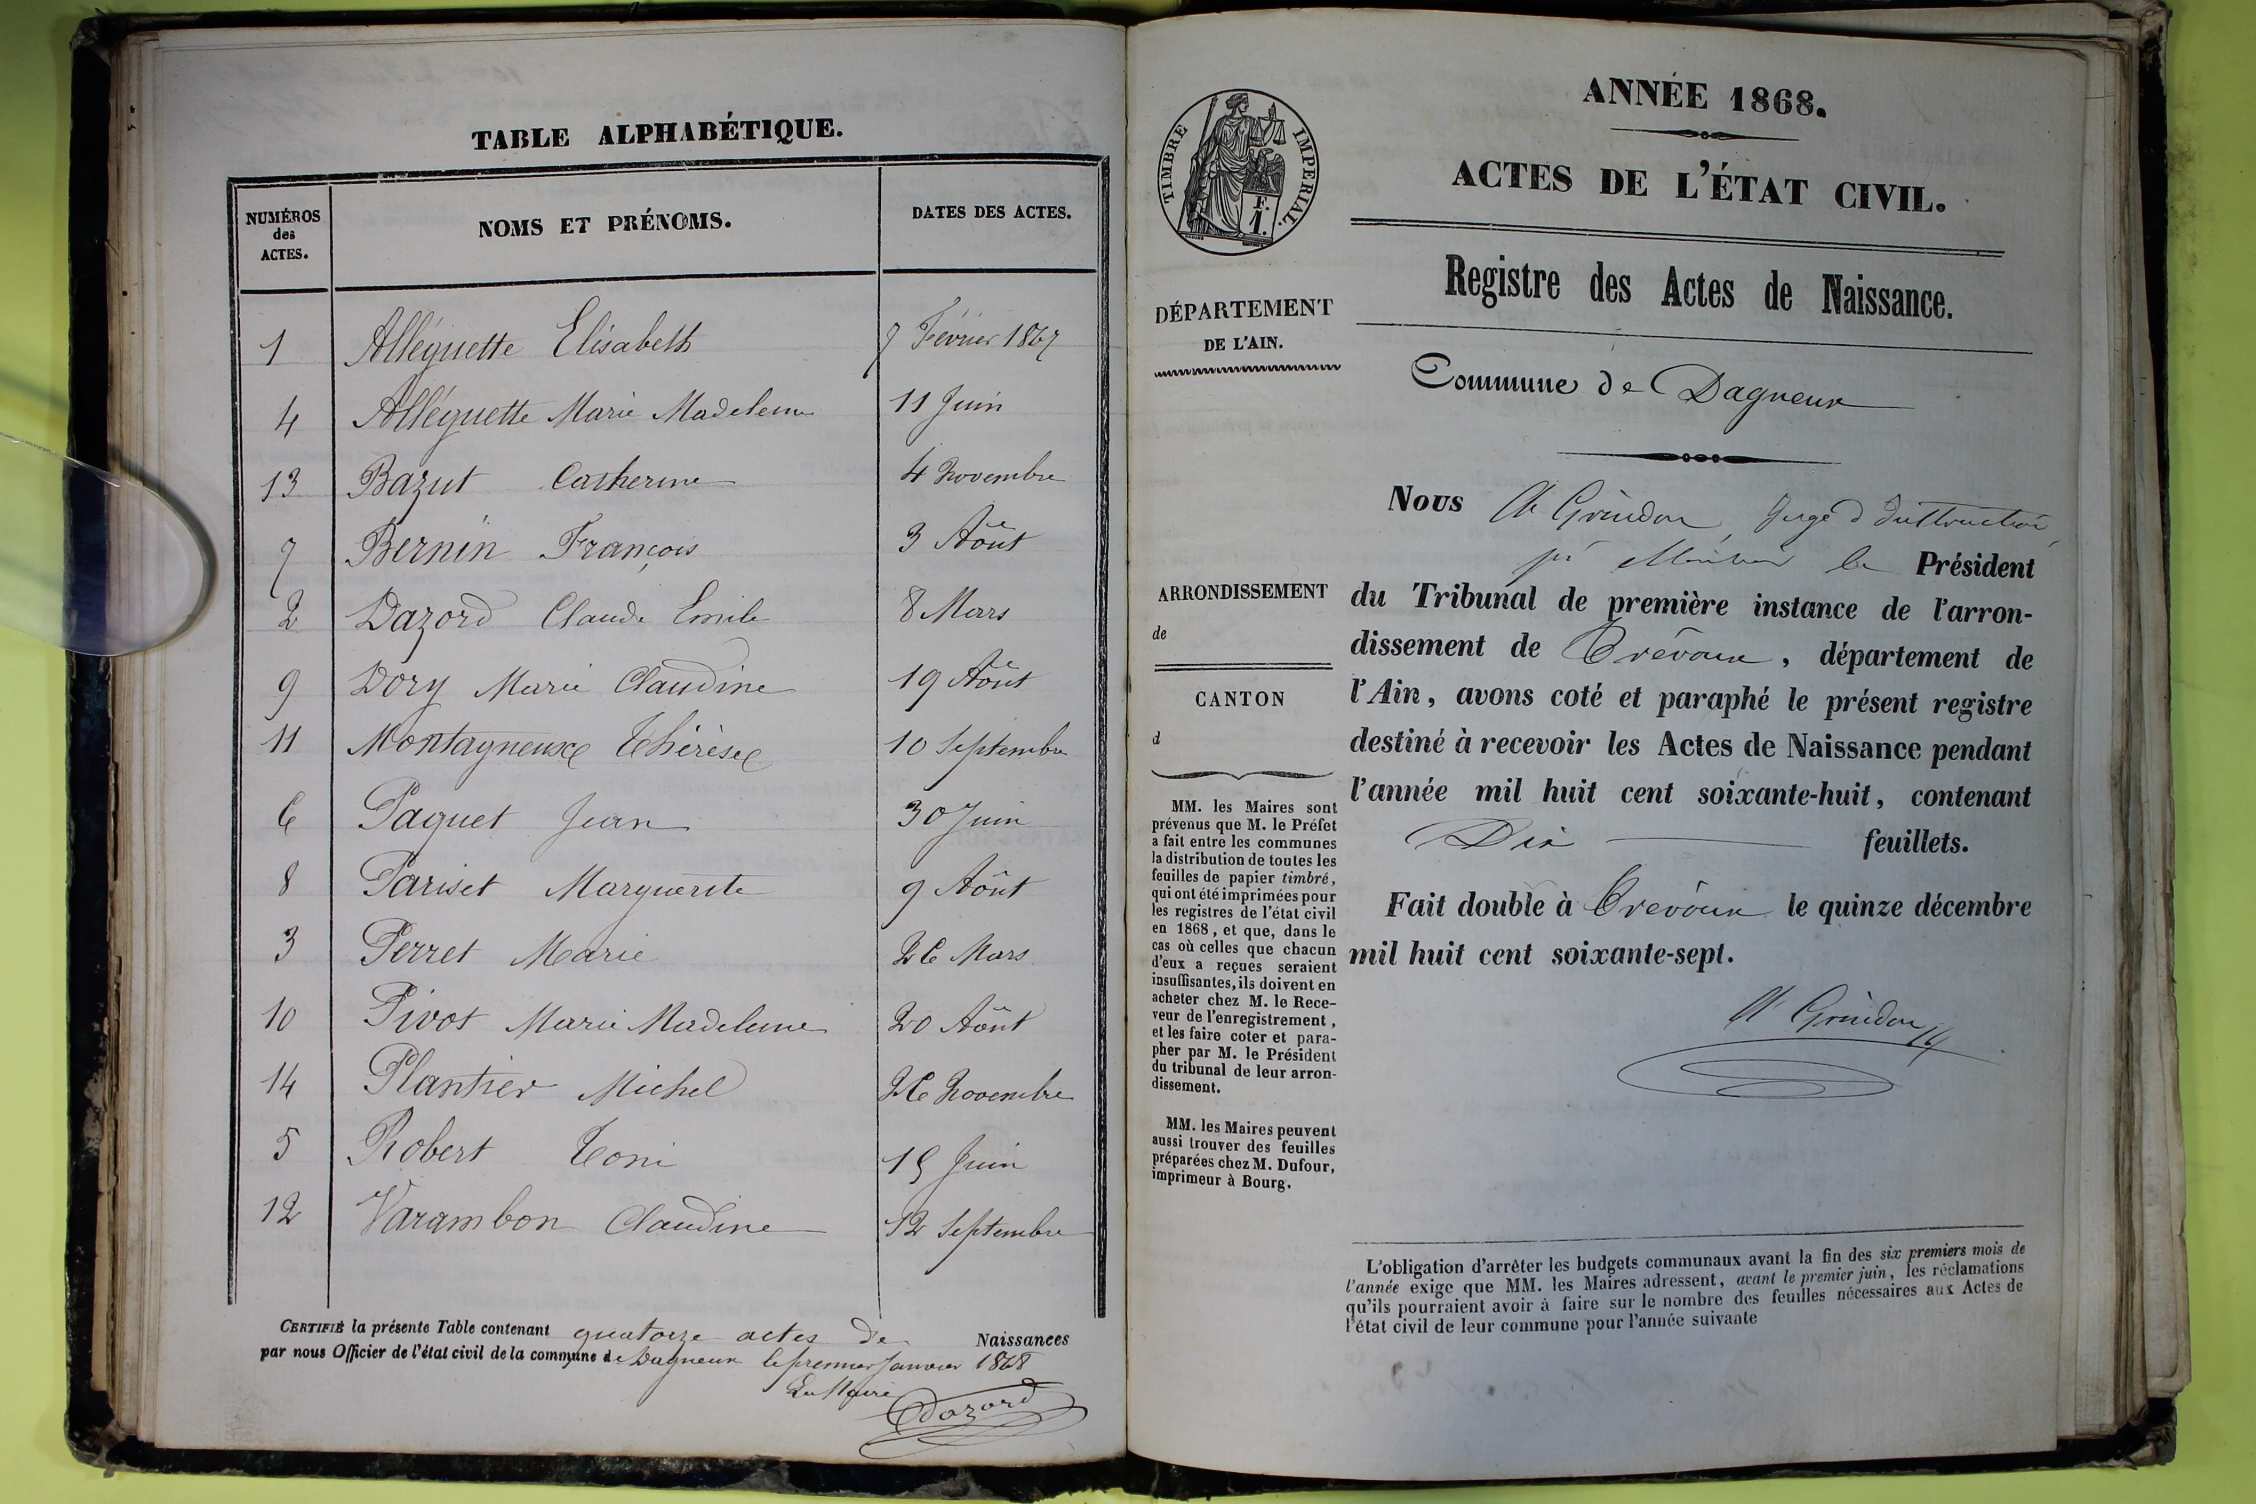 TABLE ALPHABÉTIQUE.
NUMÉROS des ACTES. NOMS ET PRÉNOMS. DATES DES ACTES.
1 Alléguette Elisabeth 7 Février 1867
4 Alléguette Marie Madeleine 11 Juin
13 Bazut Catherine 4 Novembre
7 Bernin François 3 Aôut
2 Dazord Claude Emile 8 Mars
9 Dory Marie Claudine 19 Aôut
11 Montagneux Thérèse 10 Septembre
6 Paquet Jean 30 Juin
8 Pariset Marguerite 9 Aôut
3 Perret Marie 26 Mars
10 Pivot Marie Madeleine 20 Aôut
14 Plantier Michel 26 Novembre
5 Robert Toni 15 Juin
12 Varambon Claudine 12 Septembre
CERTIFIÉ la présente Table contenant quatorze actes de Naissances
par nous Officier de l'état civil de la commune de Dagneux le premier Janvier 1868
Le Maire
Dazord
TIMBRE IMPÉRIAL.
F.
1.
DÉPARTEMENT
DE L'AIN.
ARRONDISSEMENT
de
CANTON
d
MM. les Maires sont
prévenus que M. le Préfet
a fait entre les communes
la distribution de toutes les
feuilles de papier timbré,
qui ont été imprimées pour
les registres de l'état civil
en 1868, et que, dans le
cas où celles que chacun
d'eux a reçues seraient
insuffisantes, ils doivent en
acheter chez M. le Rece-
veur de l'enregistrement,
et les faire coter et para-
pher par M. le Président
du tribunal de leur arron-
dissement.
MM. les Maires peuvent
aussi trouver des feuilles
préparées chez M. Dufour,
imprimeur à Bourg.
ANNÉE 1868.
ACTES DE L'ÉTAT CIVIL.
Registre des Actes de Naissance.
Commune de Dagneux
Nous Grindon Juge d'Instruction
le Président
du Tribunal de première instance de l'arron-
dissement de Trévoux, département de
l'Ain, avons coté et paraphé le présent registre
destiné à recevoir les Actes de Naissance pendant
l'année mil huit cent soixante-huit, contenant
Dix feuillets.
Fait double à Trévoux le quinze décembre
mil huit cent soixante-sept.
Grindon
L'obligation d'arrêter les budgets communaux avant la fin des six premiers mois de
l'année exige que MM. les Maires adressent, avant le premier juin, les réclamations
qu'ils pourraient avoir à faire sur le nombre des feuilles nécessaires aux Actes de
l'état civil de leur commune pour l'année suivante